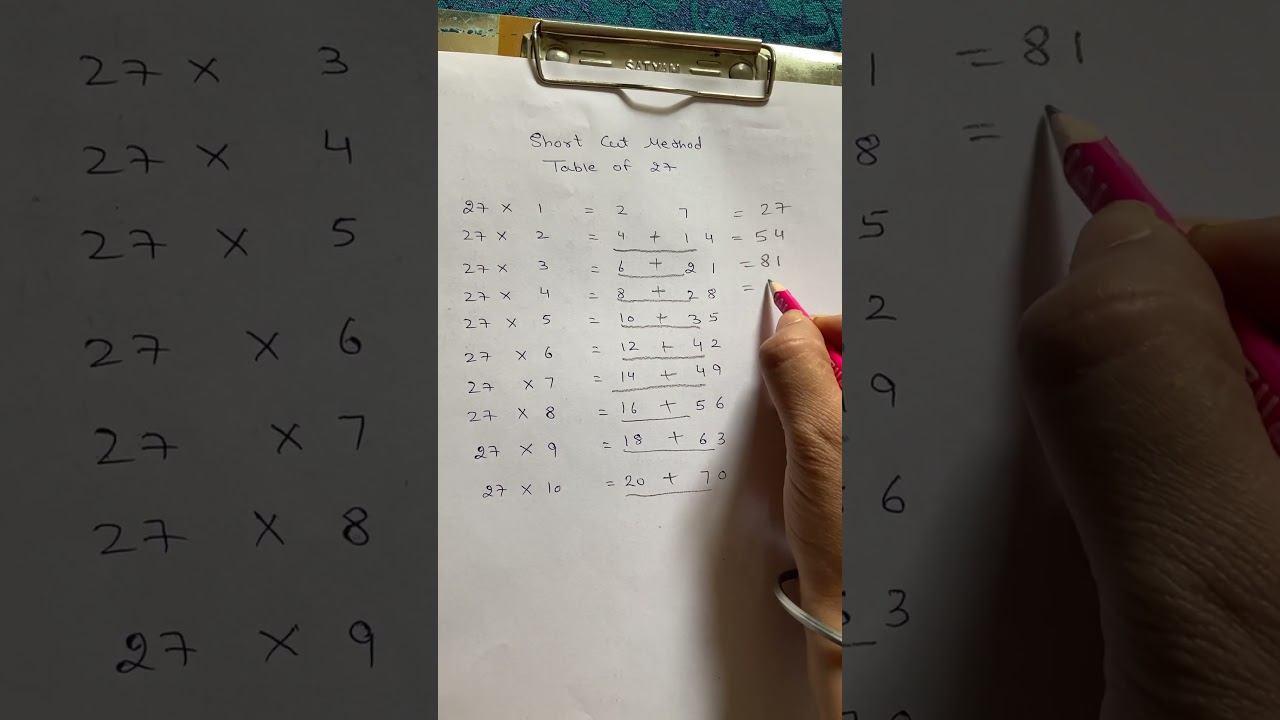 SATYAM
Short Cut Method
Table of 27
27 × 1 = 2 7 = 27
27 × 2 = 4 + 1 4 = 54
27 × 3 = 6 + 2 1 = 81
27 × 4 = 8 + 2 8 =
27 × 5 = 10 + 3 5
27 × 6 = 12 + 4 2
27 × 7 = 14 + 4 9
27 × 8 = 16 + 5 6
27 × 9 = 18 + 6 3
27 × 10 = 20 + 7 0
27 × 3
27 × 4
27 × 5
27 × 6
27 × 7
27 × 8
27 × 9
1 = 81
8 =
5
2
9
6
3